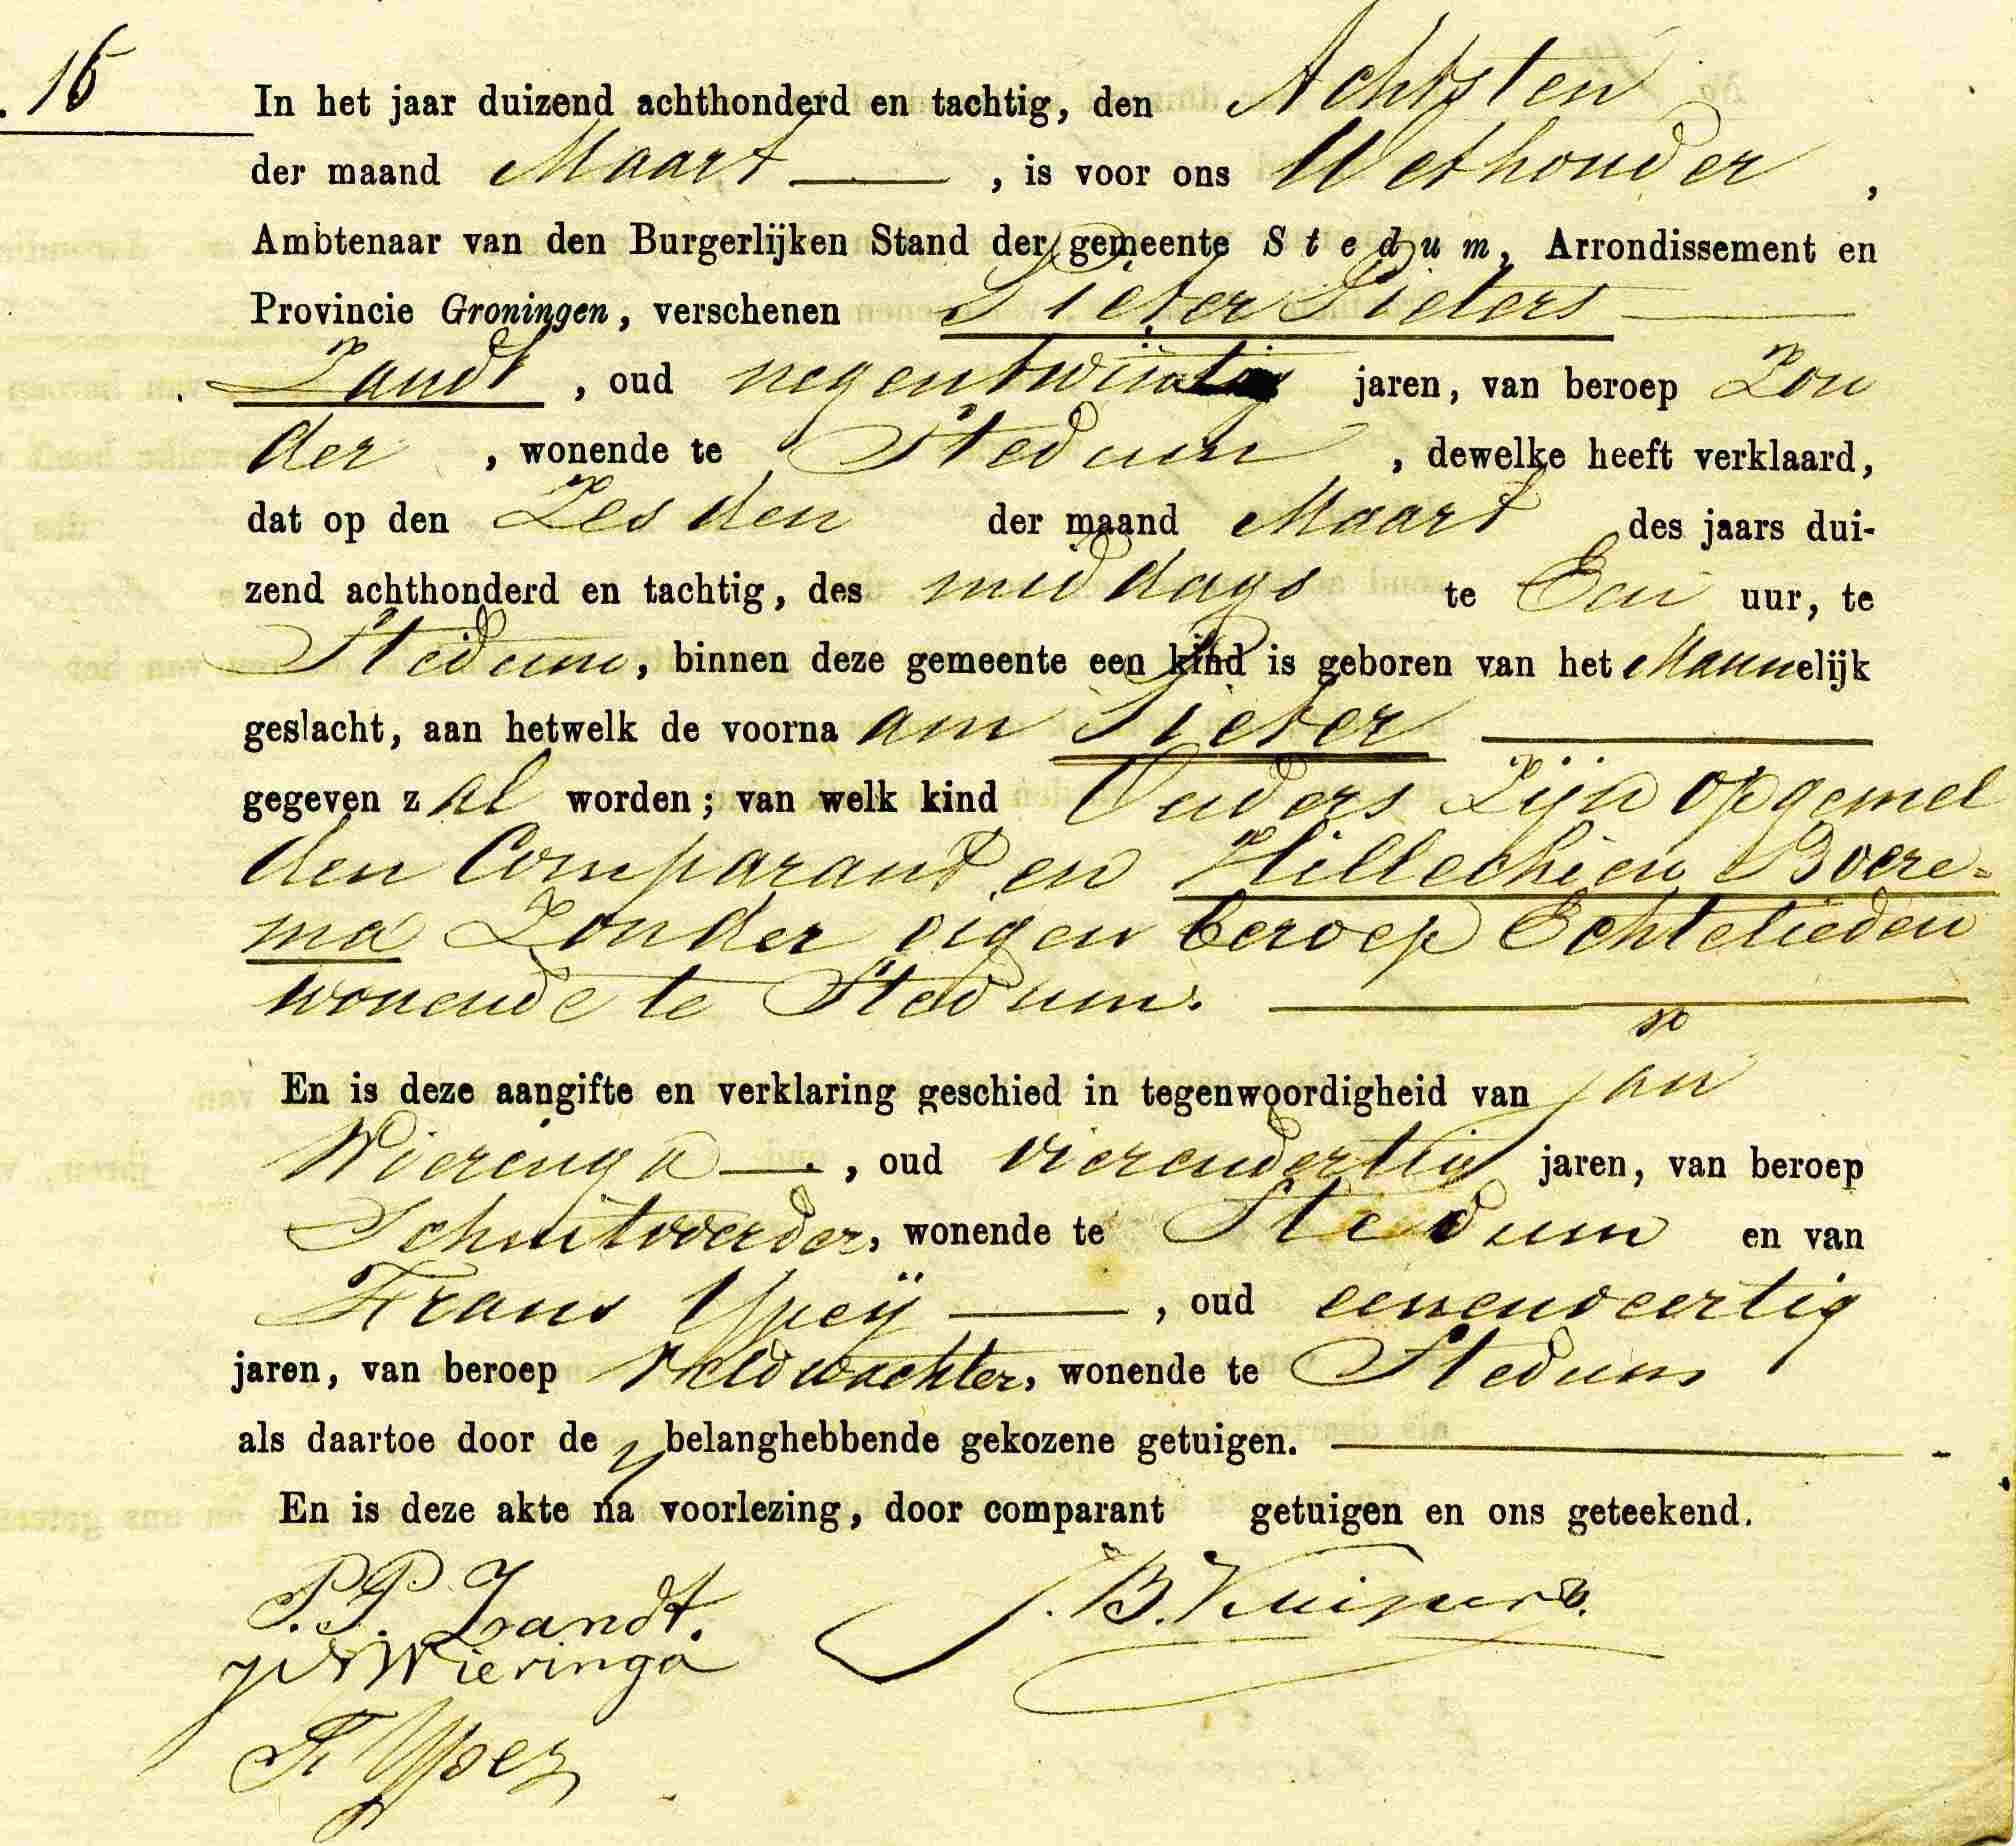 . 16
In het jaar duizend achthonderd en tachtig, den Achtsten
der maand Maart , is voor ons Wethouder ,
Ambtenaar van den Burgerlijken Stand der gemeente Stedum, Arrondissement en
Provincie Groningen, verschenen Pieter Pieters
Zandt , oud negentwintig jaren, van beroep Zon
der , wonende te Stedum , dewelke heeft verklaard,
dat op den Zesden der maand Maart des jaars dui-
zend achthonderd en tachtig, des middags te Een uur, te
Stedum, binnen deze gemeente een kind is geboren van het Mannelijk
geslacht, aan hetwelk de voorna am Pieter
gegeven zal worden; van welk kind Ouders Zijn opgemel
den Comparant en Hillechien Boere=
ma Zonder eigen beroep Echtelieden
wonende te Stedum.
En is deze aangifte en verklaring geschied in tegenwoordigheid van Jan
Wierenga , oud vierendertig jaren, van beroep
Schuitvoerder, wonende te Stedum en van
Frans Ypeÿ , oud eenenveertig
jaren, van beroep Veldwachter, wonende te Stedum
als daartoe door de belanghebbende gekozene getuigen.
En is deze akte na voorlezing, door comparant getuigen en ons geteekend.
P. P. Zandt. J. B. Kuipers.
Wieringa
F. Ypey